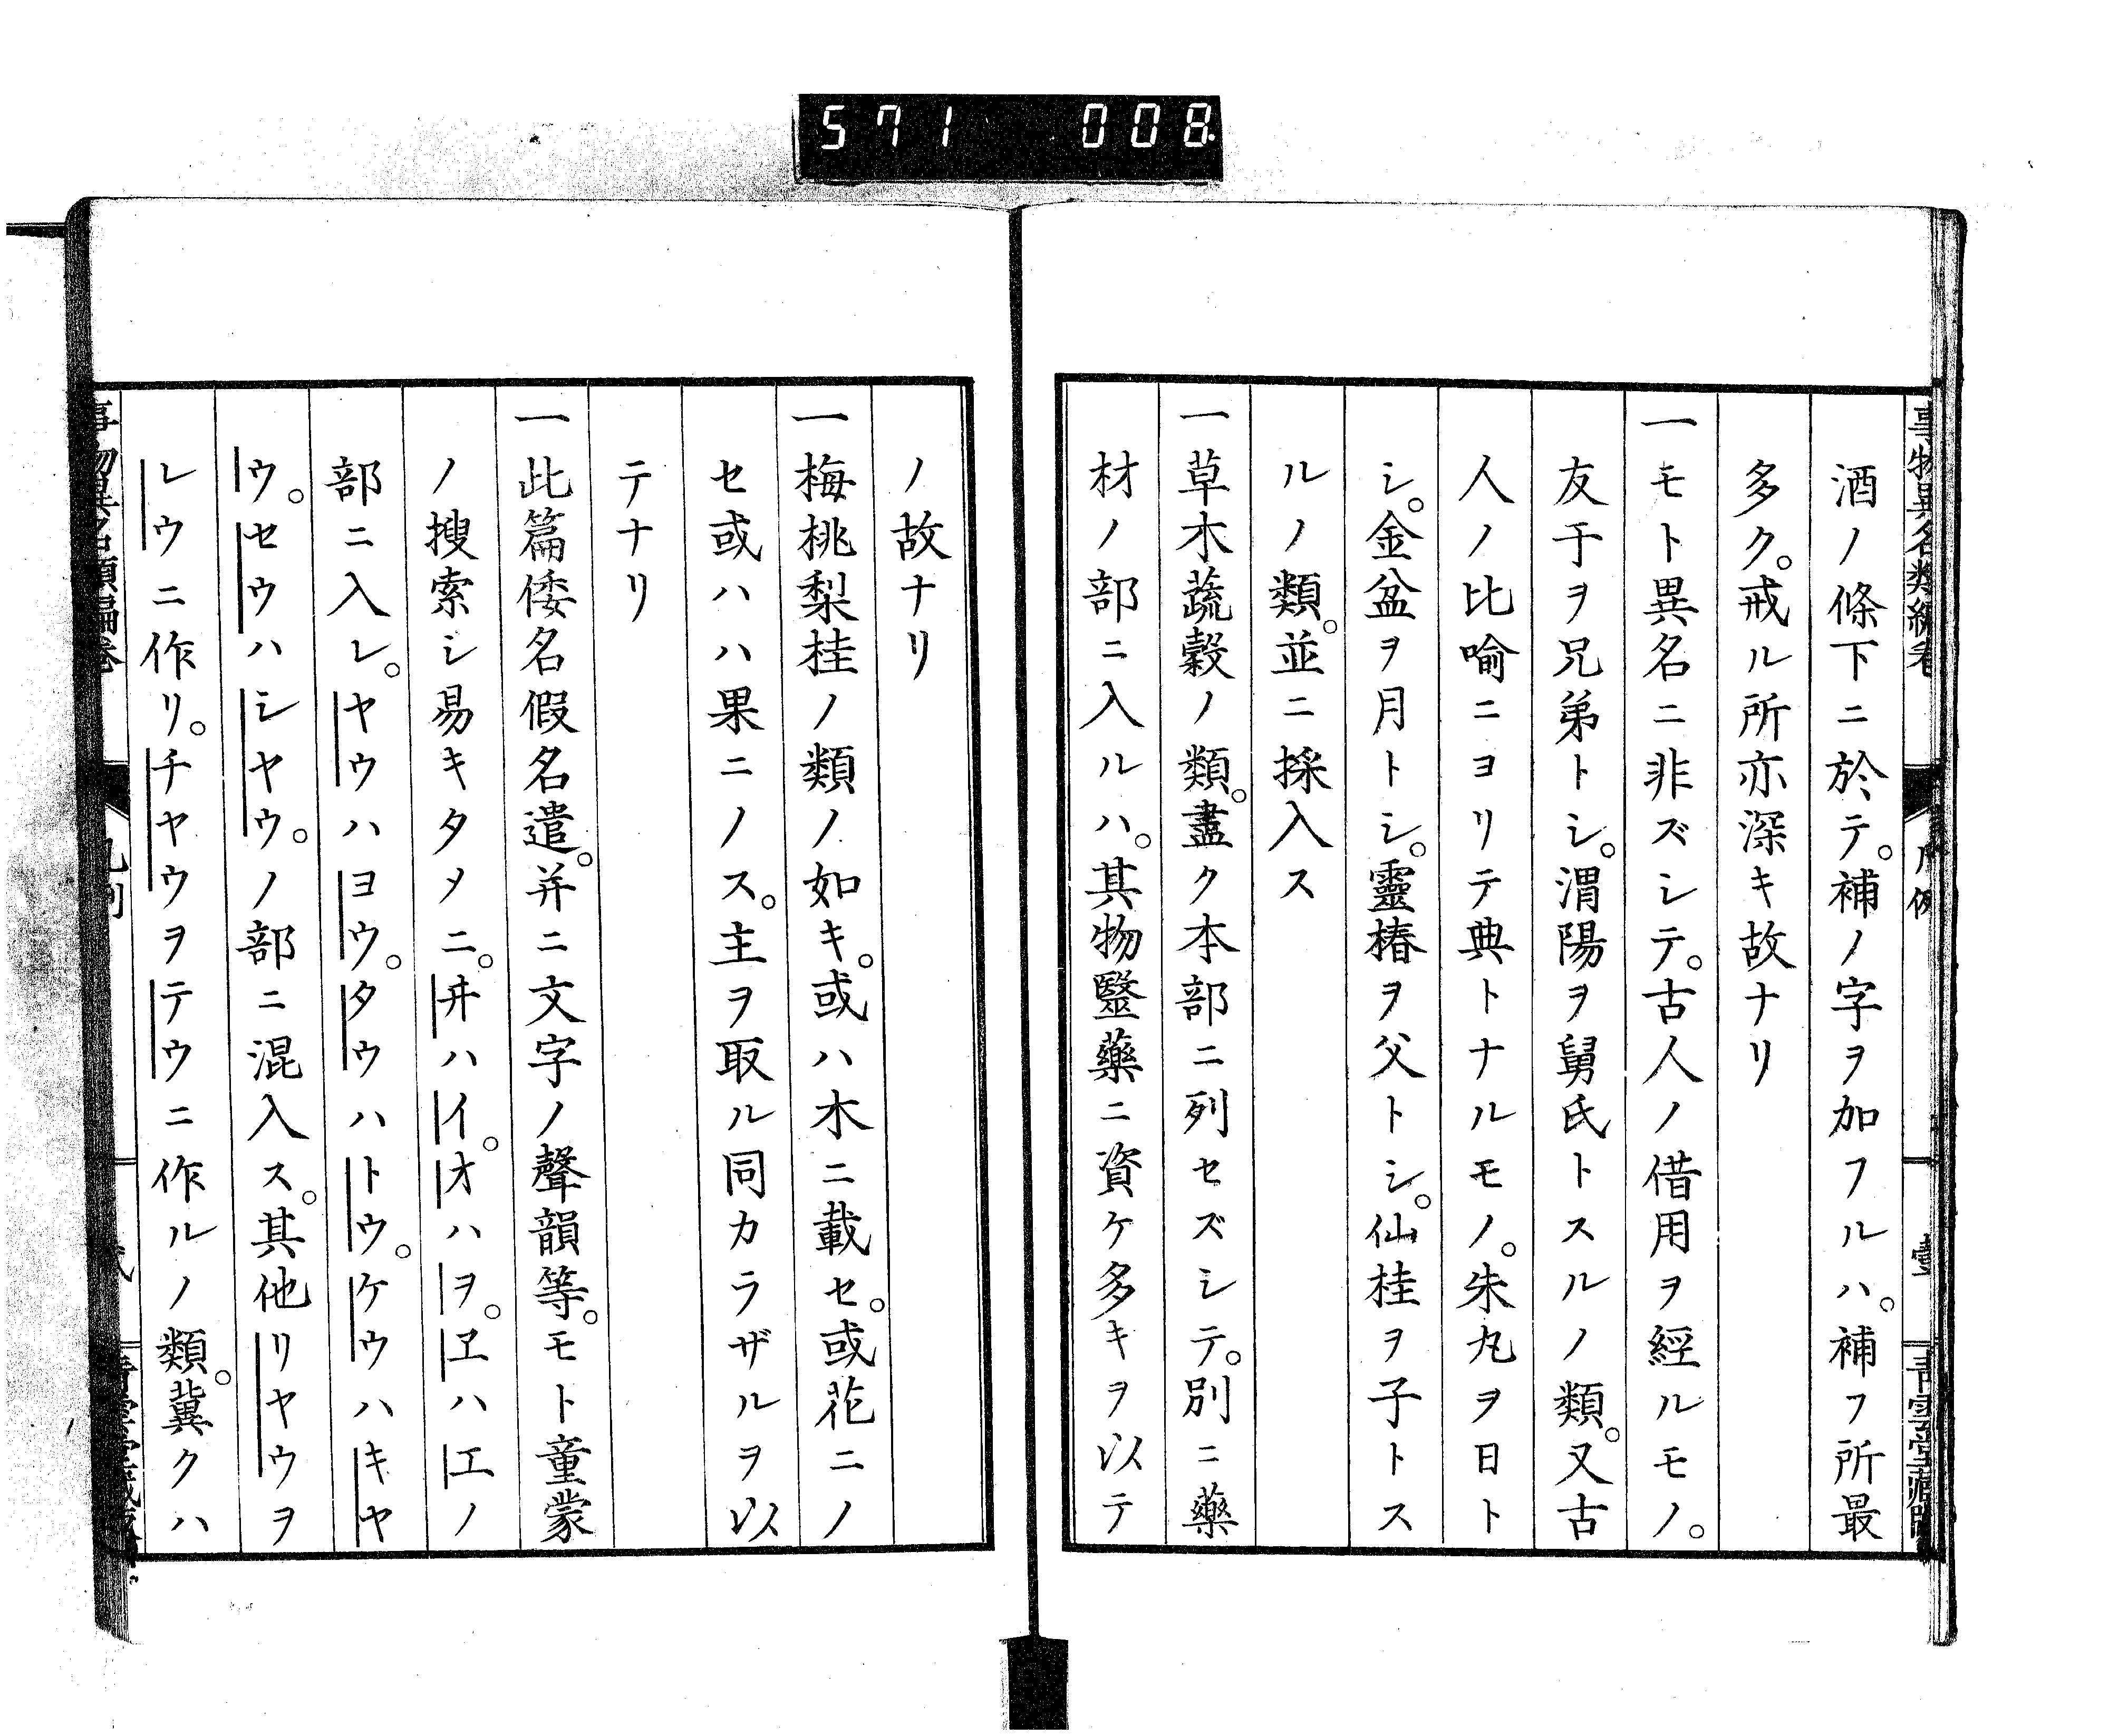 571 008
事物異名類編卷 凡例 壹 青雲堂藏
酒ノ條下ニ於テ。補ノ字ヲ加フルハ。補フ所最
多ク。戒ル所亦深キ故ナリ
一モト異名ニ非ズシテ。古人ノ借用ヲ經ルモノ。
友于ヲ兄弟トシ。渭陽ヲ舅氏トスルノ類。又古
人ノ比喩ニヨリテ典トナルモノ。朱丸ヲ日ト
シ。金盆ヲ月トシ。靈椿ヲ父トシ。仙桂ヲ子トス
ルノ類。並ニ採入ス
一草木蔬穀ノ類。盡ク本部ニ列セズシテ。別ニ藥
材ノ部ニ入ルハ。其物毉藥ニ資ケ多キヲ以テ
ノ故ナリ
一梅桃梨桂ノ類ノ如キ。或ハ木ニ載セ。或花ニノ
セ或ハハ果ニノス。主ヲ取ル同カラザルヲ以
テナリ
一此篇倭名假名遣。并ニ文字ノ聲韻等。モト童蒙
ノ搜索シ易キタメニ。ヰハイ。オハヲ。ヱハエノ
部ニ入レ。ヤウハヨウ。タウハトウ。ケウハキヤ
ウ。セウハシヤウ。ノ部ニ混入ス。其他リヤウヲ
レウニ作リ。チヤウヲテウニ作ルノ類。冀クハ
事物異名類編卷 凡例 貳 青雲堂藏